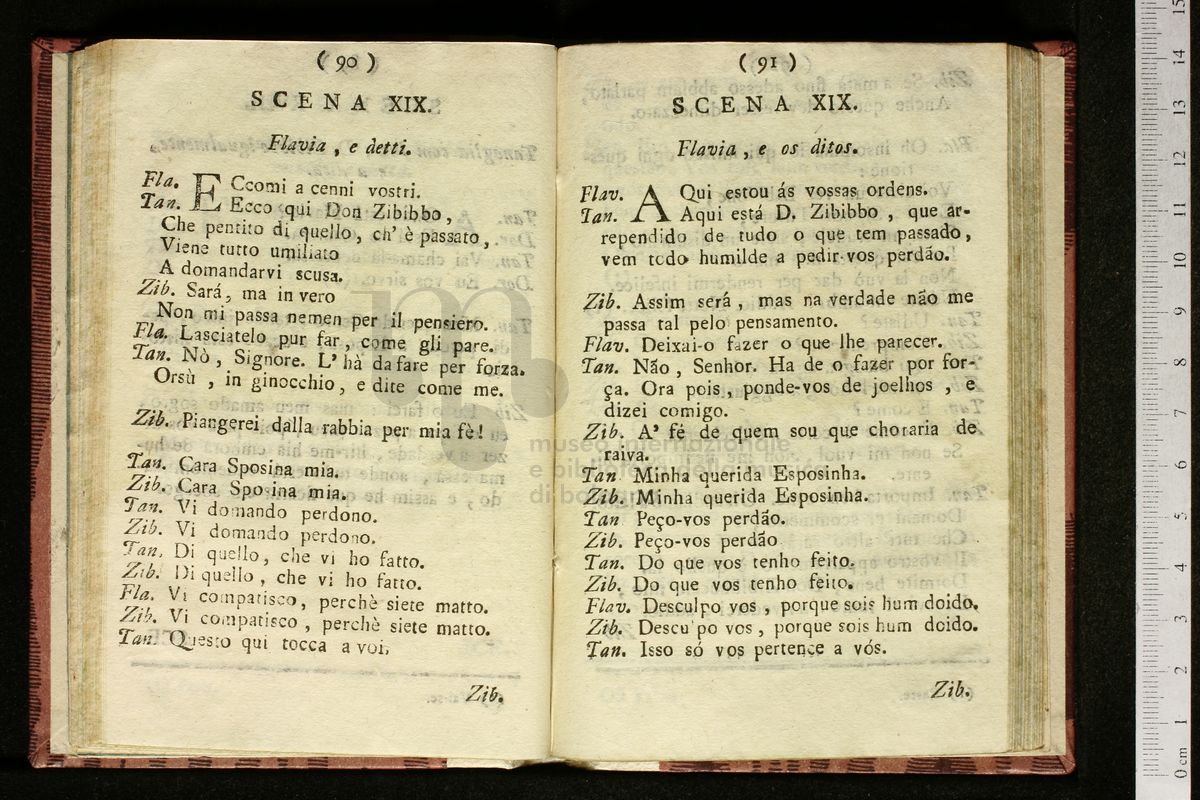 ( 90 )
SCENA XIX.
Flavia , e detti.
Fla. ECcomi a cenni vostri.
Tan. Ecco qui Don Zibibbo,
Che pentito di quello, ch' è passato,
Viene tutto umiliato
A domandarvi scusa.
Zib. Sará, ma in vero
Non mi passa nemen per il pensiero.
Fla. Lasciatelo pur far, come gli pare.
Tan. Nò, Signore. L' hà da fare per forza.
Orsù , in ginocchio, e dite come me.
Zib. Piangerei dalla rabbia per mia fè!
Tan. Cara Sposina mia.
Zib. Cara Sposina mia.
Tan. Vi domando perdono.
Zib. Vi domando perdono.
Tan. Di quello, che vi ho fatto.
Zib. Di quello, che vi ho fatto.
Fla. Vi compatisco, perchè siete matto.
Zib. Vi compatisco, perchè siete matto.
Tan. Questo qui tocca a voi,
Zib.
( 91 )
SCENA XIX.
Flavia , e os ditos.
Flav. AQui estou ás vossas ordens.
Tan. Aqui está D. Zibibbo , que ar-
rependido de tudo o que tem passado,
vem todo humilde a pedir-vos perdão.
Zib. Assim será , mas na verdade não me
passa tal pelo pensamento.
Flav. Deixai-o fazer o que lhe parecer.
Tan. Não, Senhor. Ha de o fazer por for-
ça. Ora pois, ponde-vos de joelhos , e
dizei comigo.
Zib. A' fé de quem sou que choraria de
raiva.
Tan Minha querida Esposinha.
Zib. Minha querida Esposinha.
Tan Peço-vos perdão.
Zib. Peço-vos perdão
Tan. Do que vos tenho feito.
Zib. Do que vos tenho feito.
Flav. Desculpo vos , porque sois hum doido.
Zib. Descu'po vos , porque sois hum doido.
Tan. Isso só vos pertence a vós.
Zib.
museo internazionale
e biblioteca della musica
di bologna
0 cm 1 2 3 4 5 6 7 8 9 10 11 12 13 14 15